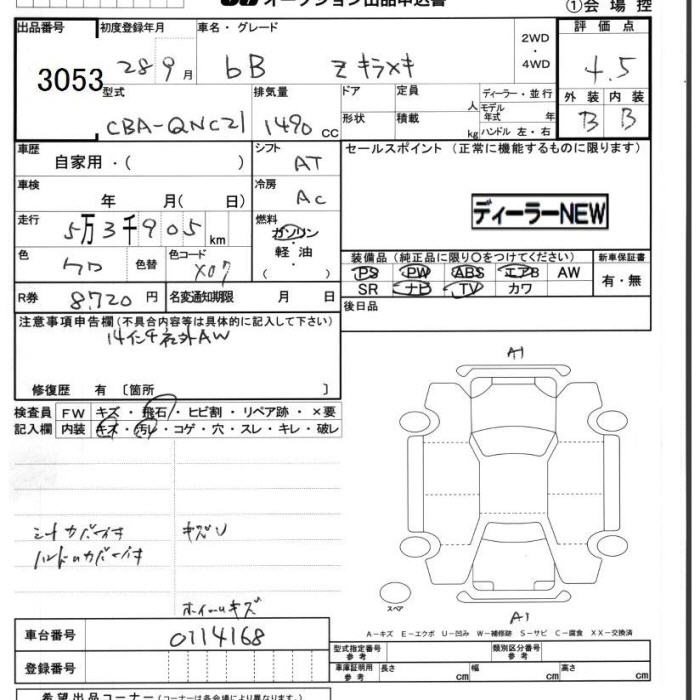 オークション出品申込書
①会場控
出品番号 初度登録年月 車名・グレード 2WD・4WD 評価点
3053 28 9月 bB Z キラメキ 4.5
型式 排気量 ドア 定員 人 ディーラー・並行 外装 内装
モデル年式 年
CBA-QNC21 1490 cc 形状 積載 kg ハンドル 左・右 B B
車歴 自家用・( ) シフト AT セールスポイント (正常に機能するものに限ります)
車検 年 月( 日) 冷房 AC
ディーラーNEW
走行 5万3千905km 燃料 ガソリン
軽・油
( )
色 クロ 色替 色コード X07
装備品 (純正品に限り〇をつけてください) 新車保証書
PS PW ABS エアB AW 有・無
SR ナビ TV カワ
R券 8,720円 名変通知期限 月 日
後日品
注意事項申告欄(不具合内容等は具体的に記入して下さい)
14インチ社外AW
修復歴 有 〔箇所 〕
検査員 FW キズ・飛石・ヒビ割・リペア跡・×要
記入欄 内装 キズ・汚レ・コゲ・穴・スレ・キレ・破レ
A1
シートカバー付 キズU
ハンドルカバー付
ホイールキズ
スペア
A1
A-キズ E-エクボ U-凹み W-補修跡 S-サビ C-腐食 XX-交換済
車台番号 0114168
型式指定番号 参考 類別区分番号 参考
登録番号
車庫証明用 参考 長さ cm 幅 cm 高さ cm
希望出品コーナー(コーナーは各会場により異なります。)